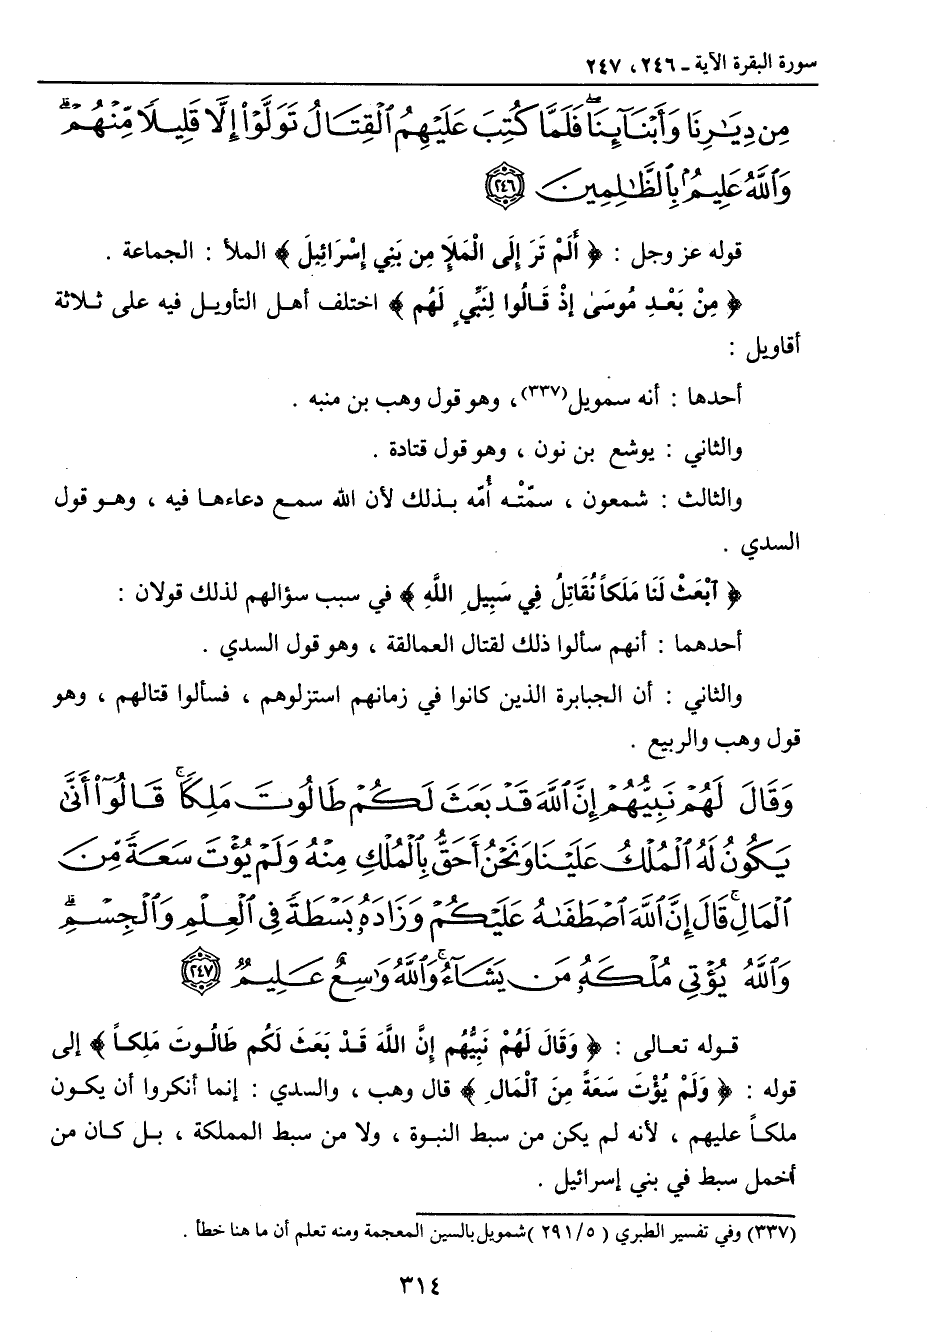 سورة البقرة الآية ـ ٢٤٦، ٢٤٧
مِن دِيَٰرِنَا وَأَبْنَآئِنَا ۖ فَلَمَّا كُتِبَ عَلَيْهِمُ ٱلْقِتَالُ تَوَلَّوْا۟ إِلَّا قَلِيلًا مِّنْهُمْ ۗ
وَٱللَّهُ عَلِيمٌۢ بِٱلظَّٰلِمِينَ ﴿٢٤٦﴾
قوله عز وجل : ﴿ أَلَمْ تَرَ إِلَى الْمَلَإِ مِن بَنِي إِسْرَائِيلَ ﴾ الملأ : الجماعة .
﴿ مِنْ بَعْدِ مُوسَىٰ إِذْ قَالُوا لِنَبِيٍّ لَهُم ﴾ اختلف أهل التأويل فيه على ثلاثة
أقاويل :
أحدها : أنه سمويل(٣٣٧)، وهو قول وهب بن منبه .
والثاني : يوشع بن نون ، وهو قول قتادة .
والثالث : شمعون ، سمّتْه أُمّه بذلك لأن الله سمع دعاءها فيه ، وهو قول
السدي .
﴿ ٱبْعَثْ لَنَا مَلَكاً نُقَاتِلُ فِي سَبِيلِ اللَّهِ ﴾ في سبب سؤالهم لذلك قولان :
أحدهما : أنهم سألوا ذلك لقتال العمالقة ، وهو قول السدي .
والثاني : أن الجبابرة الذين كانوا في زمانهم استزلوهم ، فسألوا قتالهم ، وهو
قول وهب والربيع .
وَقَالَ لَهُمْ نَبِيُّهُمْ إِنَّ ٱللَّهَ قَدْ بَعَثَ لَكُمْ طَالُوتَ مَلِكًا ۚ قَالُوٓا۟ أَنَّىٰ
يَكُونُ لَهُ ٱلْمُلْكُ عَلَيْنَا وَنَحْنُ أَحَقُّ بِٱلْمُلْكِ مِنْهُ وَلَمْ يُؤْتَ سَعَةً مِّنَ
ٱلْمَالِ ۚ قَالَ إِنَّ ٱللَّهَ ٱصْطَفَىٰهُ عَلَيْكُمْ وَزَادَهُۥ بَسْطَةً فِى ٱلْعِلْمِ وَٱلْجِسْمِ ۖ
وَٱللَّهُ يُؤْتِى مُلْكَهُۥ مَن يَشَآءُ ۚ وَٱللَّهُ وَٰسِعٌ عَلِيمٌ ﴿٢٤٧﴾
قوله تعالى : ﴿ وَقَالَ لَهُمْ نَبِيُّهُم إِنَّ اللَّهَ قَدْ بَعَثَ لَكُم طَالُوتَ مَلِكاً ﴾ إلى
قوله : ﴿ وَلَمْ يُؤْتَ سَعَةً مِنَ ٱلْمَالِ ﴾ قال وهب ، والسدي : إنما أنكروا أن يكون
ملكاً عليهم ، لأنه لم يكن من سبط النبوة ، ولا من سبط المملكة ، بل كان من
أخمل سبط في بني إسرائيل .
(٣٣٧) وفي تفسير الطبري ( ٢٩١/٥ )شمويل بالسين المعجمة ومنه تعلم أن ما هنا خطأ .
٣١٤